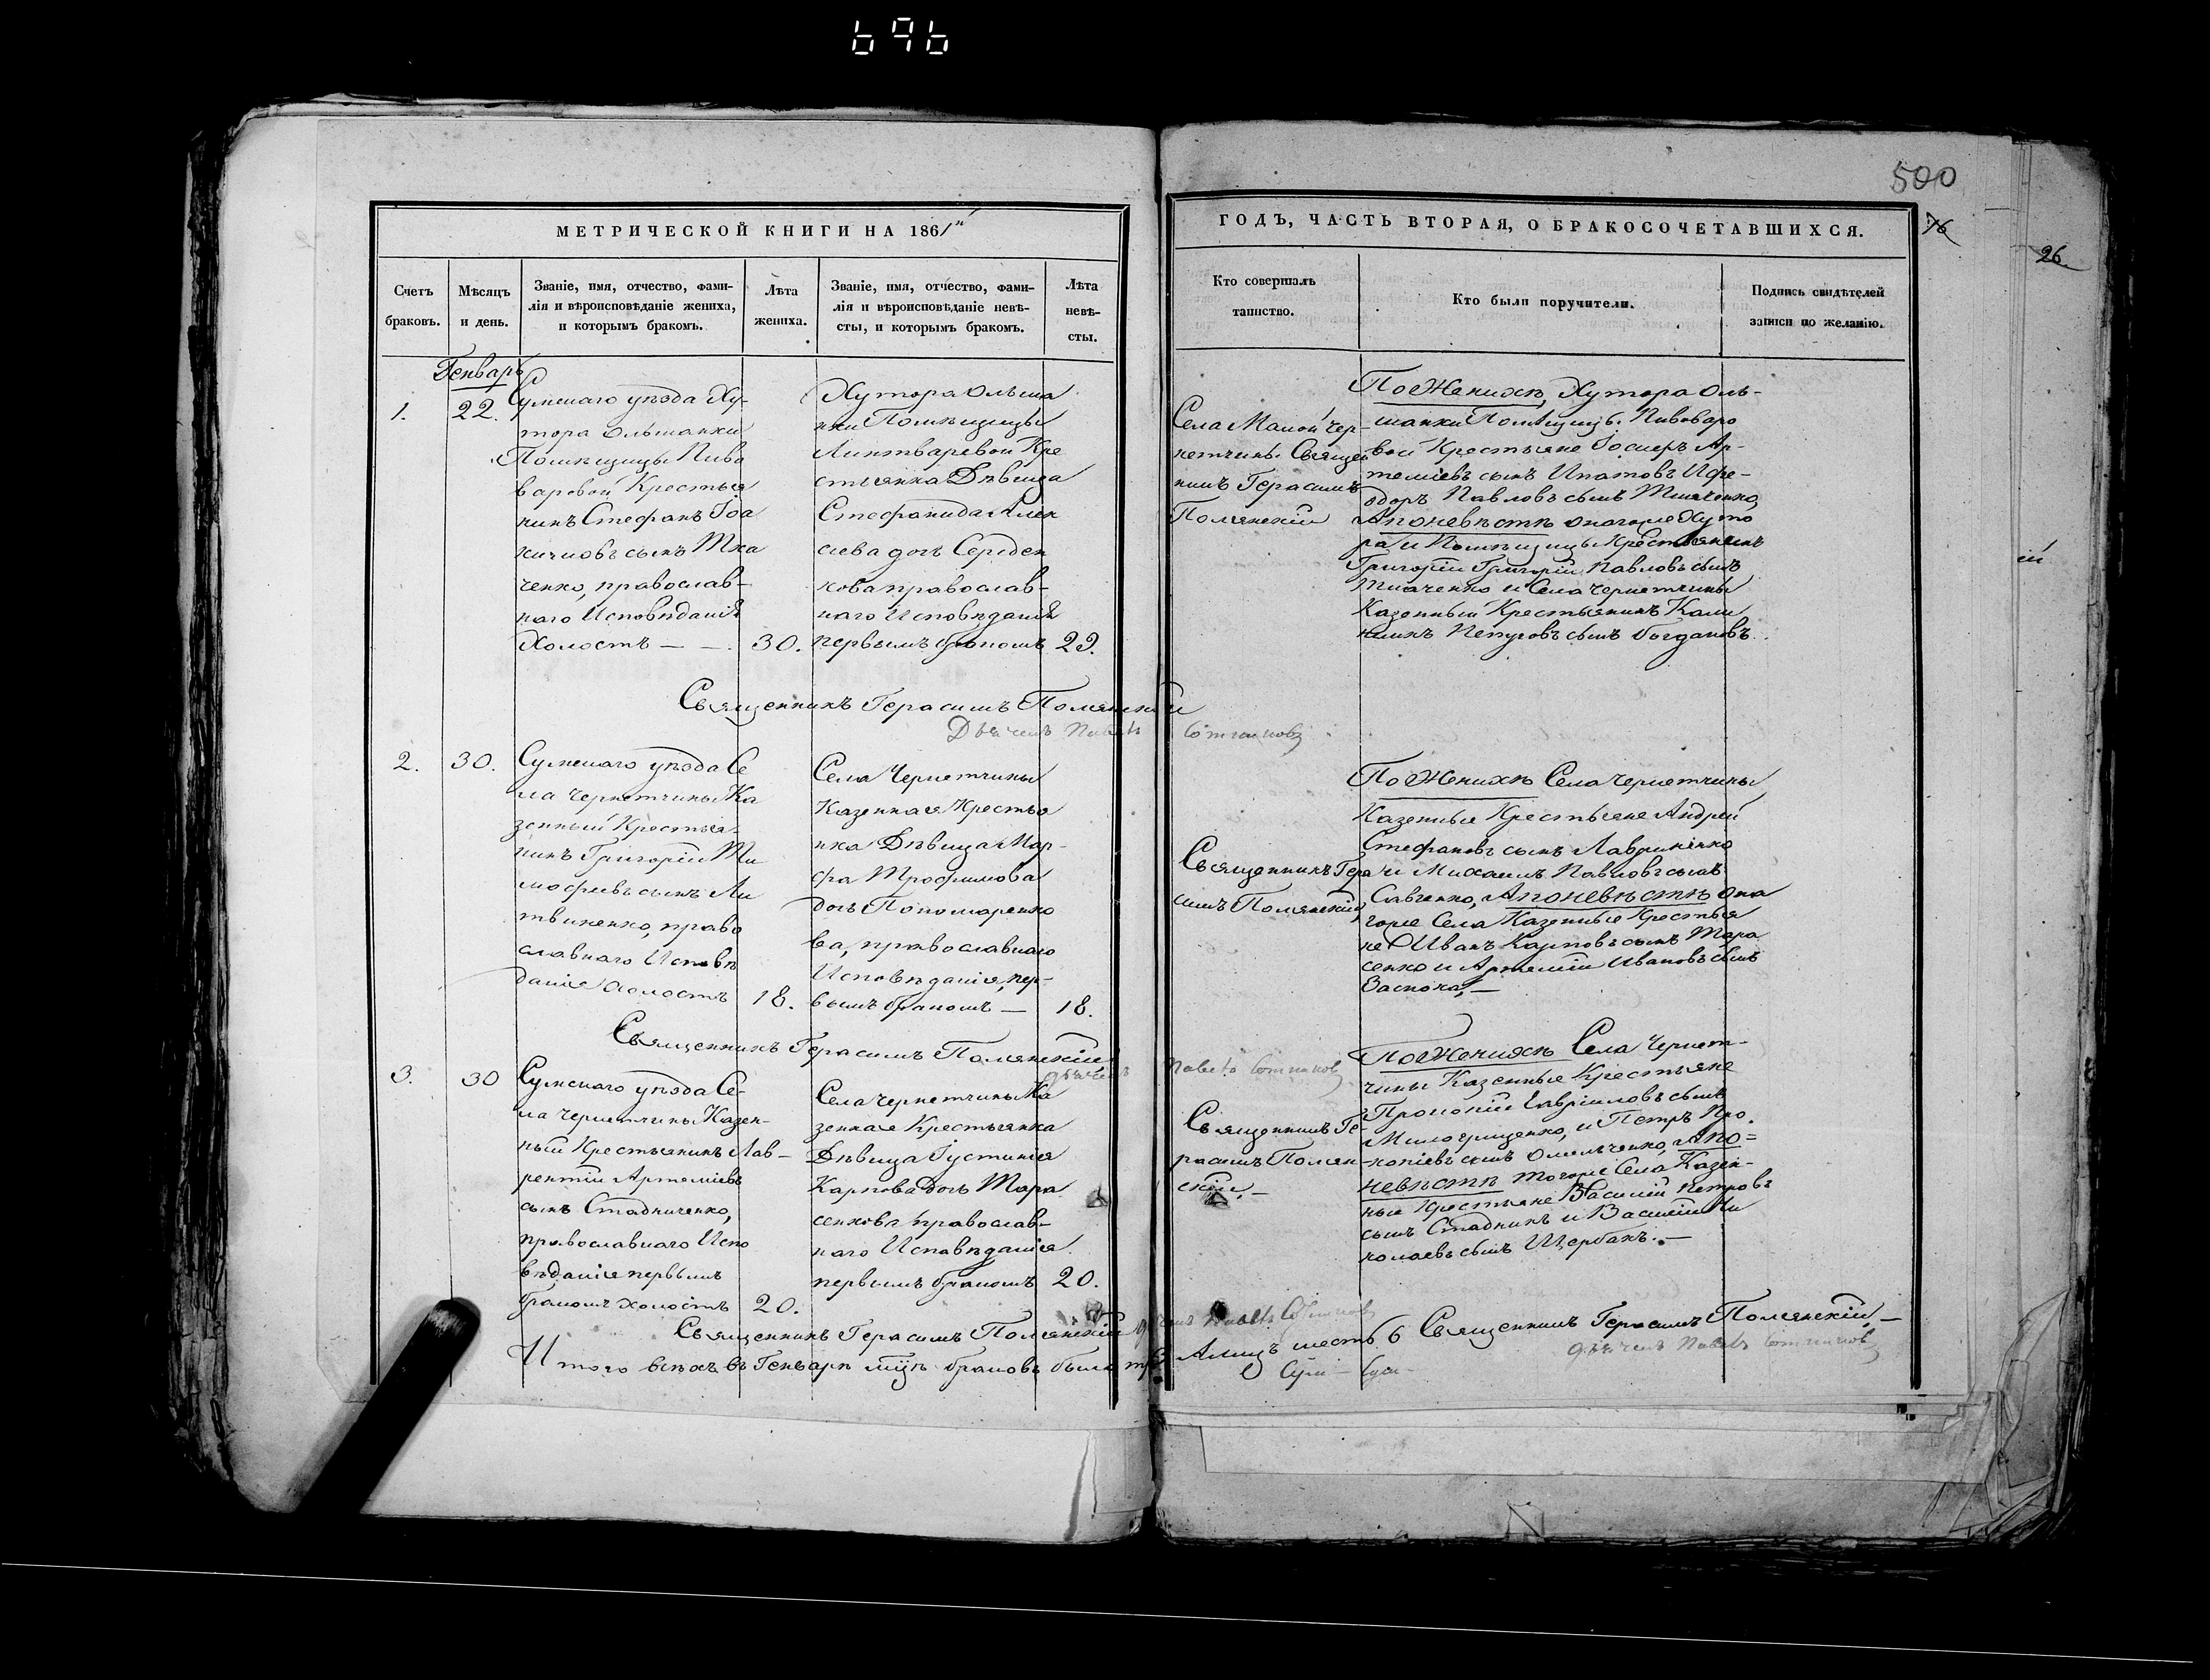 696
500
76
26.
МЕТРИЧЕСКОЙ КНИГИ НА 1861й
ГОДЪ, ЧАСТЬ ВТОРАЯ, О БРАКОСОЧЕТАВШИХСЯ.
Счетъ
браковъ.
Мѣсяцъ
и день.
Званіе, имя, отчество, фами-
лія и вѣроисповѣданіе жениха,
и которымъ бракомъ.
Лѣта
жениха.
Званіе, имя, отчество, фами-
лія и вѣроисповѣданіе невѣ-
сты, и которымъ бракомъ.
Лѣта
невѣ-
сты.
Кто совершалъ
таинство.
Кто были поручители.
Подпись свидѣтелей
записи по желанію.
Генварь
1.
22.
Сумскаго уѣзда Ху-
тора Ольшанки
Помѣщицы Пиво
варовой Крестья
нинъ Стефанъ Іоа
кимовъ сынъ Тка
ченко, православ-
наго Исповѣданія
Холостъ — —
30.
Хутора Ольша
нки Помѣщицы
Линтваревой Кре
стьянка Дѣвица
Стефанида Алек
сѣева дочь Середен
кова православ-
наго Исповѣданія
первымъ бракомъ
22.
Села Малой Чер-
нетчины Священ
никъ Герасимъ
Полянскій
По Женихѣ, Хутора Оль-
шанки Помѣщицы Пивоваро
вой Крестьяне Іосифъ Ар-
теміевъ сынъ Ипатовъ И Фе-
одоръ Павловъ сынъ Ткаченко,
А по невѣстѣ онагоже Хуто
ра и Помѣщицы Крестьянинъ
Григорій Григорій Павловъ сынъ
Ткаченко и Села Чернетчины
Казенный Крестьянинъ Кали
никъ Петровъ сынъ Богдановъ.
Священникъ Герасимъ Полянскій
Дьячекъ Павелъ Сотниковъ
2.
30.
Сумскаго уѣзда Се
ла Чернетчины Ка
зенный Крестья-
нинъ Григорій Ти
мофеевъ сынъ Ли
твиненко, право
славнаго Исповѣ
данія Холостъ
18.
Села Чернетчины
Казенная Крестья
нка Дѣвица Мар-
фа Трофимова
дочь Пономаренко
ва, православнаго
Исповѣданія, пер-
вымъ бракомъ —
18.
Священникъ Гера
симъ Полянскій,
По Женихѣ Села Чернетчины
Казенные Крестьяне Андрей
Стефановъ сынъ Лавриненко
и Михаилъ Павловъ сынъ
Савченко, А по невѣстѣ она
гоже Села Казенные Крестья
не Иванъ Карповъ сынъ Тара
сенко и Артемій Ивановъ сынъ
Заспока, —
Священникъ Герасимъ Полянскій
дьячекъ
Павелъ Сотниковъ
3.
30
Сумскаго уѣзда Се-
ла Чернетчины Казен-
ный Крестьянинъ Лав-
рентій Артеміевъ
сынъ Стадниченко,
православнаго Испо
вѣданія первымъ
бракомъ холостъ
20.
Села Чернетчины Ка
зенная Крестьянка
Дѣвица Іустинія
Карпова дочь Тара
сенкова православ-
наго Исповѣданія
первымъ бракомъ
20.
Священникъ Ге-
расимъ Полян-
скій, —
По Женихѣ Села Чернет-
чины Казенные Крестьяне
Прокопій Гавріиловъ сынъ
Милогрищенко, и Петръ Про.
копіевъ сынъ Омельченко, А по=
невѣстѣ тогоже Села Казен-
ные Крестьяне Василій Петровъ
сынъ Стадникъ и Василій Ни
колаевъ сынъ Щербакъ. —
Священникъ Герасимъ Полянскій
Павелъ Сотниковъ
Итого всѣхъ въ Генварѣ мцѣ браковъ было три
А лицъ шесть 6 Священникъ Герасимъ Полянскій, —
дьячекъ Павелъ Сотниковъ